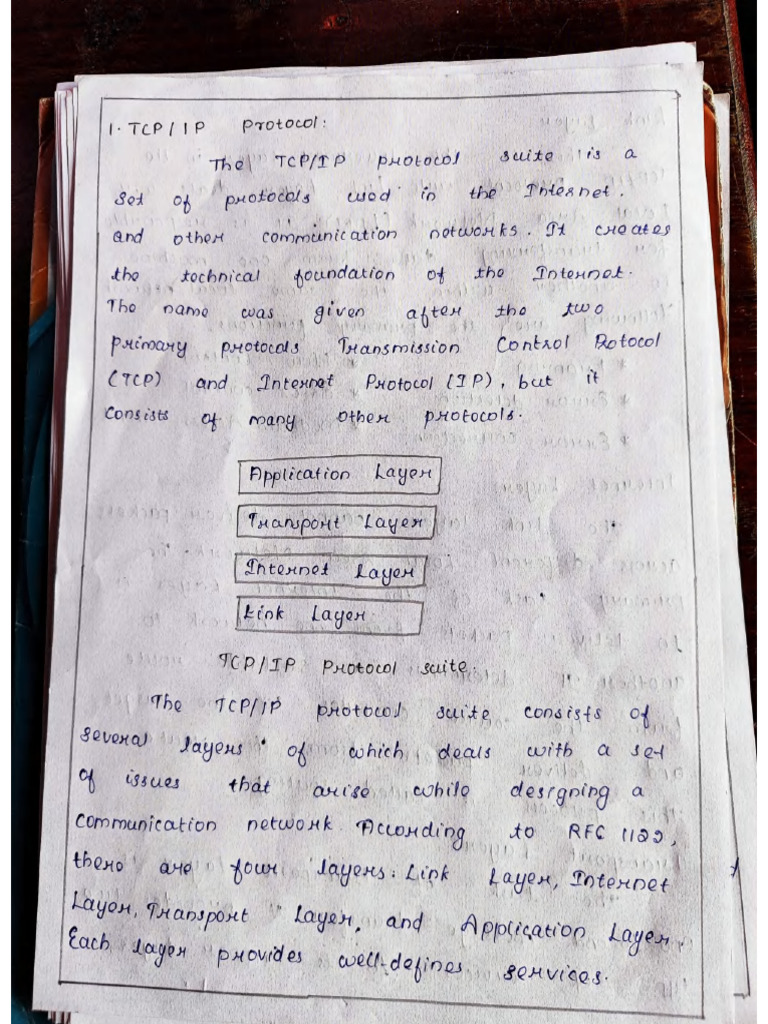 1. TCP/IP Protocol:
The TCP/IP protocol suite is a
set of protocols used in the Internet.
and other communication networks. It creates
the technical foundation of the Internet.
The name was given after the two
primary protocols Transmission Control Rotocol
(TCP) and Internet Protocol (IP), but it
consists of many other protocols.
Application Layer
Transport Layer
Internet Layer
Link Layer
TCP/IP Protocol suite.
The TCP/IP protocol suite consists of
several layers of which deals with a set
of issues that arise while designing a
communication network. According to RFC 1122,
there are four layers: Link Layer, Internet
Layer, Transport Layer, and Application Layer.
Each layer provides well-defines services.